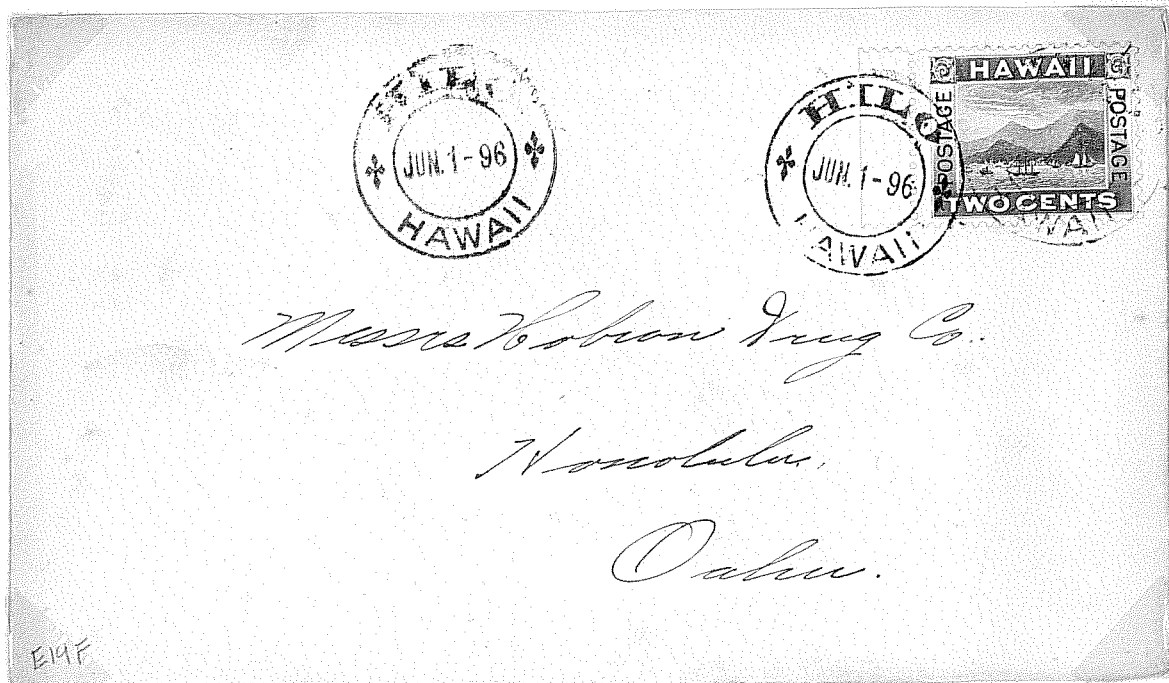 HILO
JUN. 1-96
HAWAII
HILO
JUN. 1-96
HAWAII
HAWAII
POSTAGE
POSTAGE
TWO CENTS
WAII
Messrs Hobron Drug Co.
Honolulu,
Oahu.
E19F